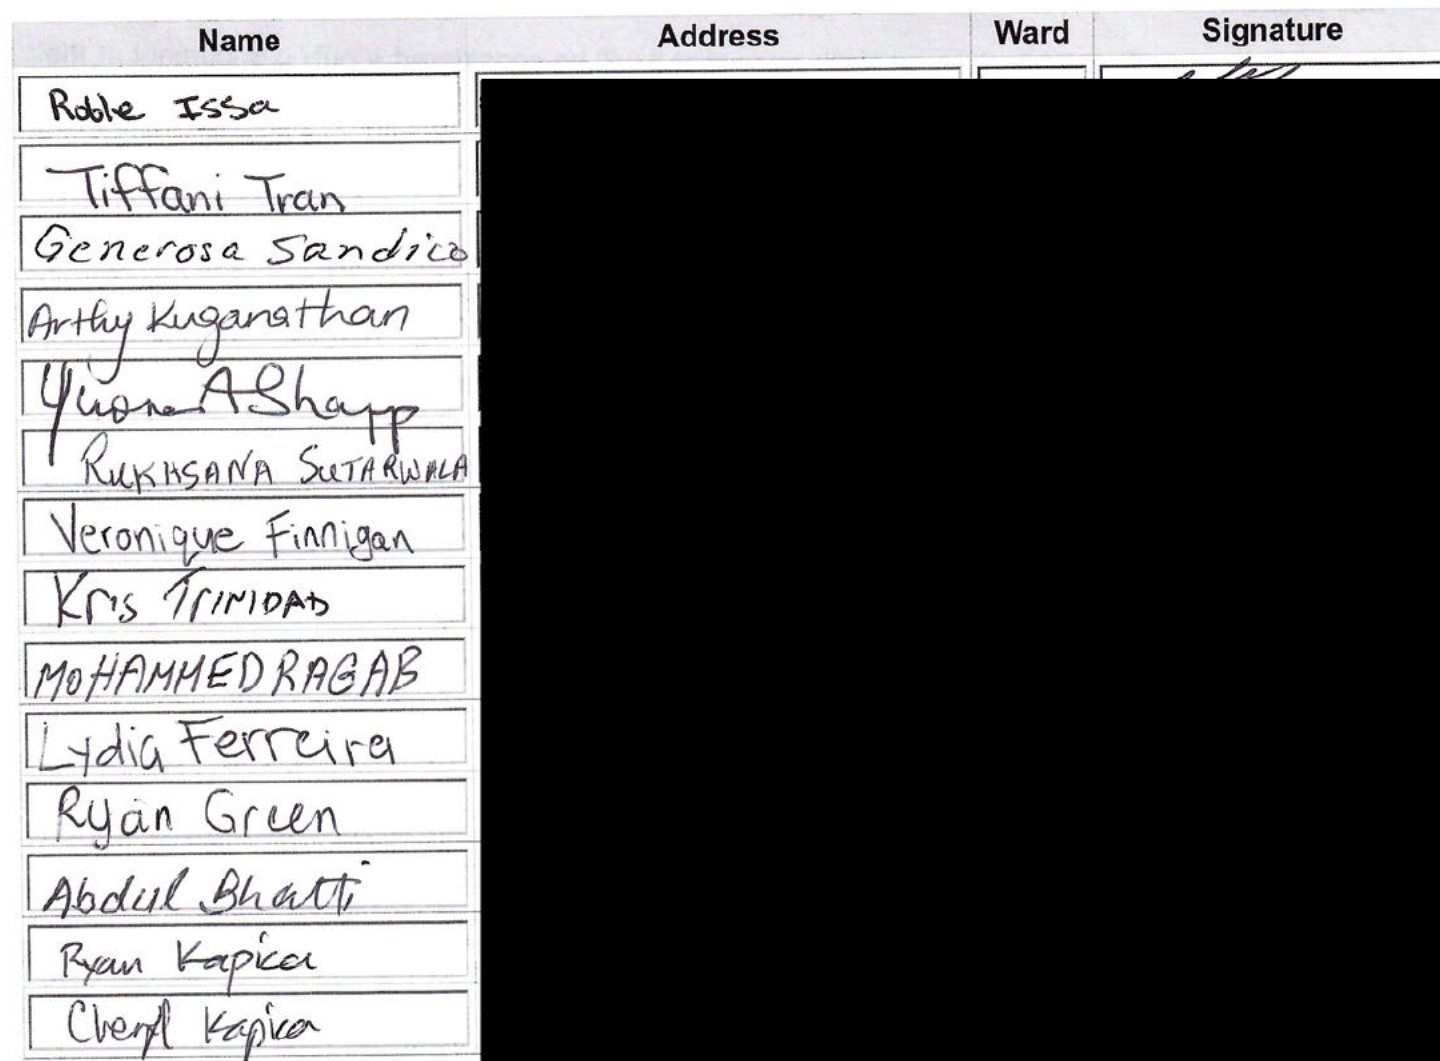 Name Address Ward Signature
Roble Issa
Tiffani Tran
Generosa Sandico
Arthy Kuganathan
Yvonne A Sharpp
RUKHSANA SUTARWALA
Veronique Finnigan
Kris TRINIDAD
MOHAMMED RAGAB
Lydia Ferreira
Ryan Green
Abdul Bhatti
Ryan Kapica
Cheryl Kapica